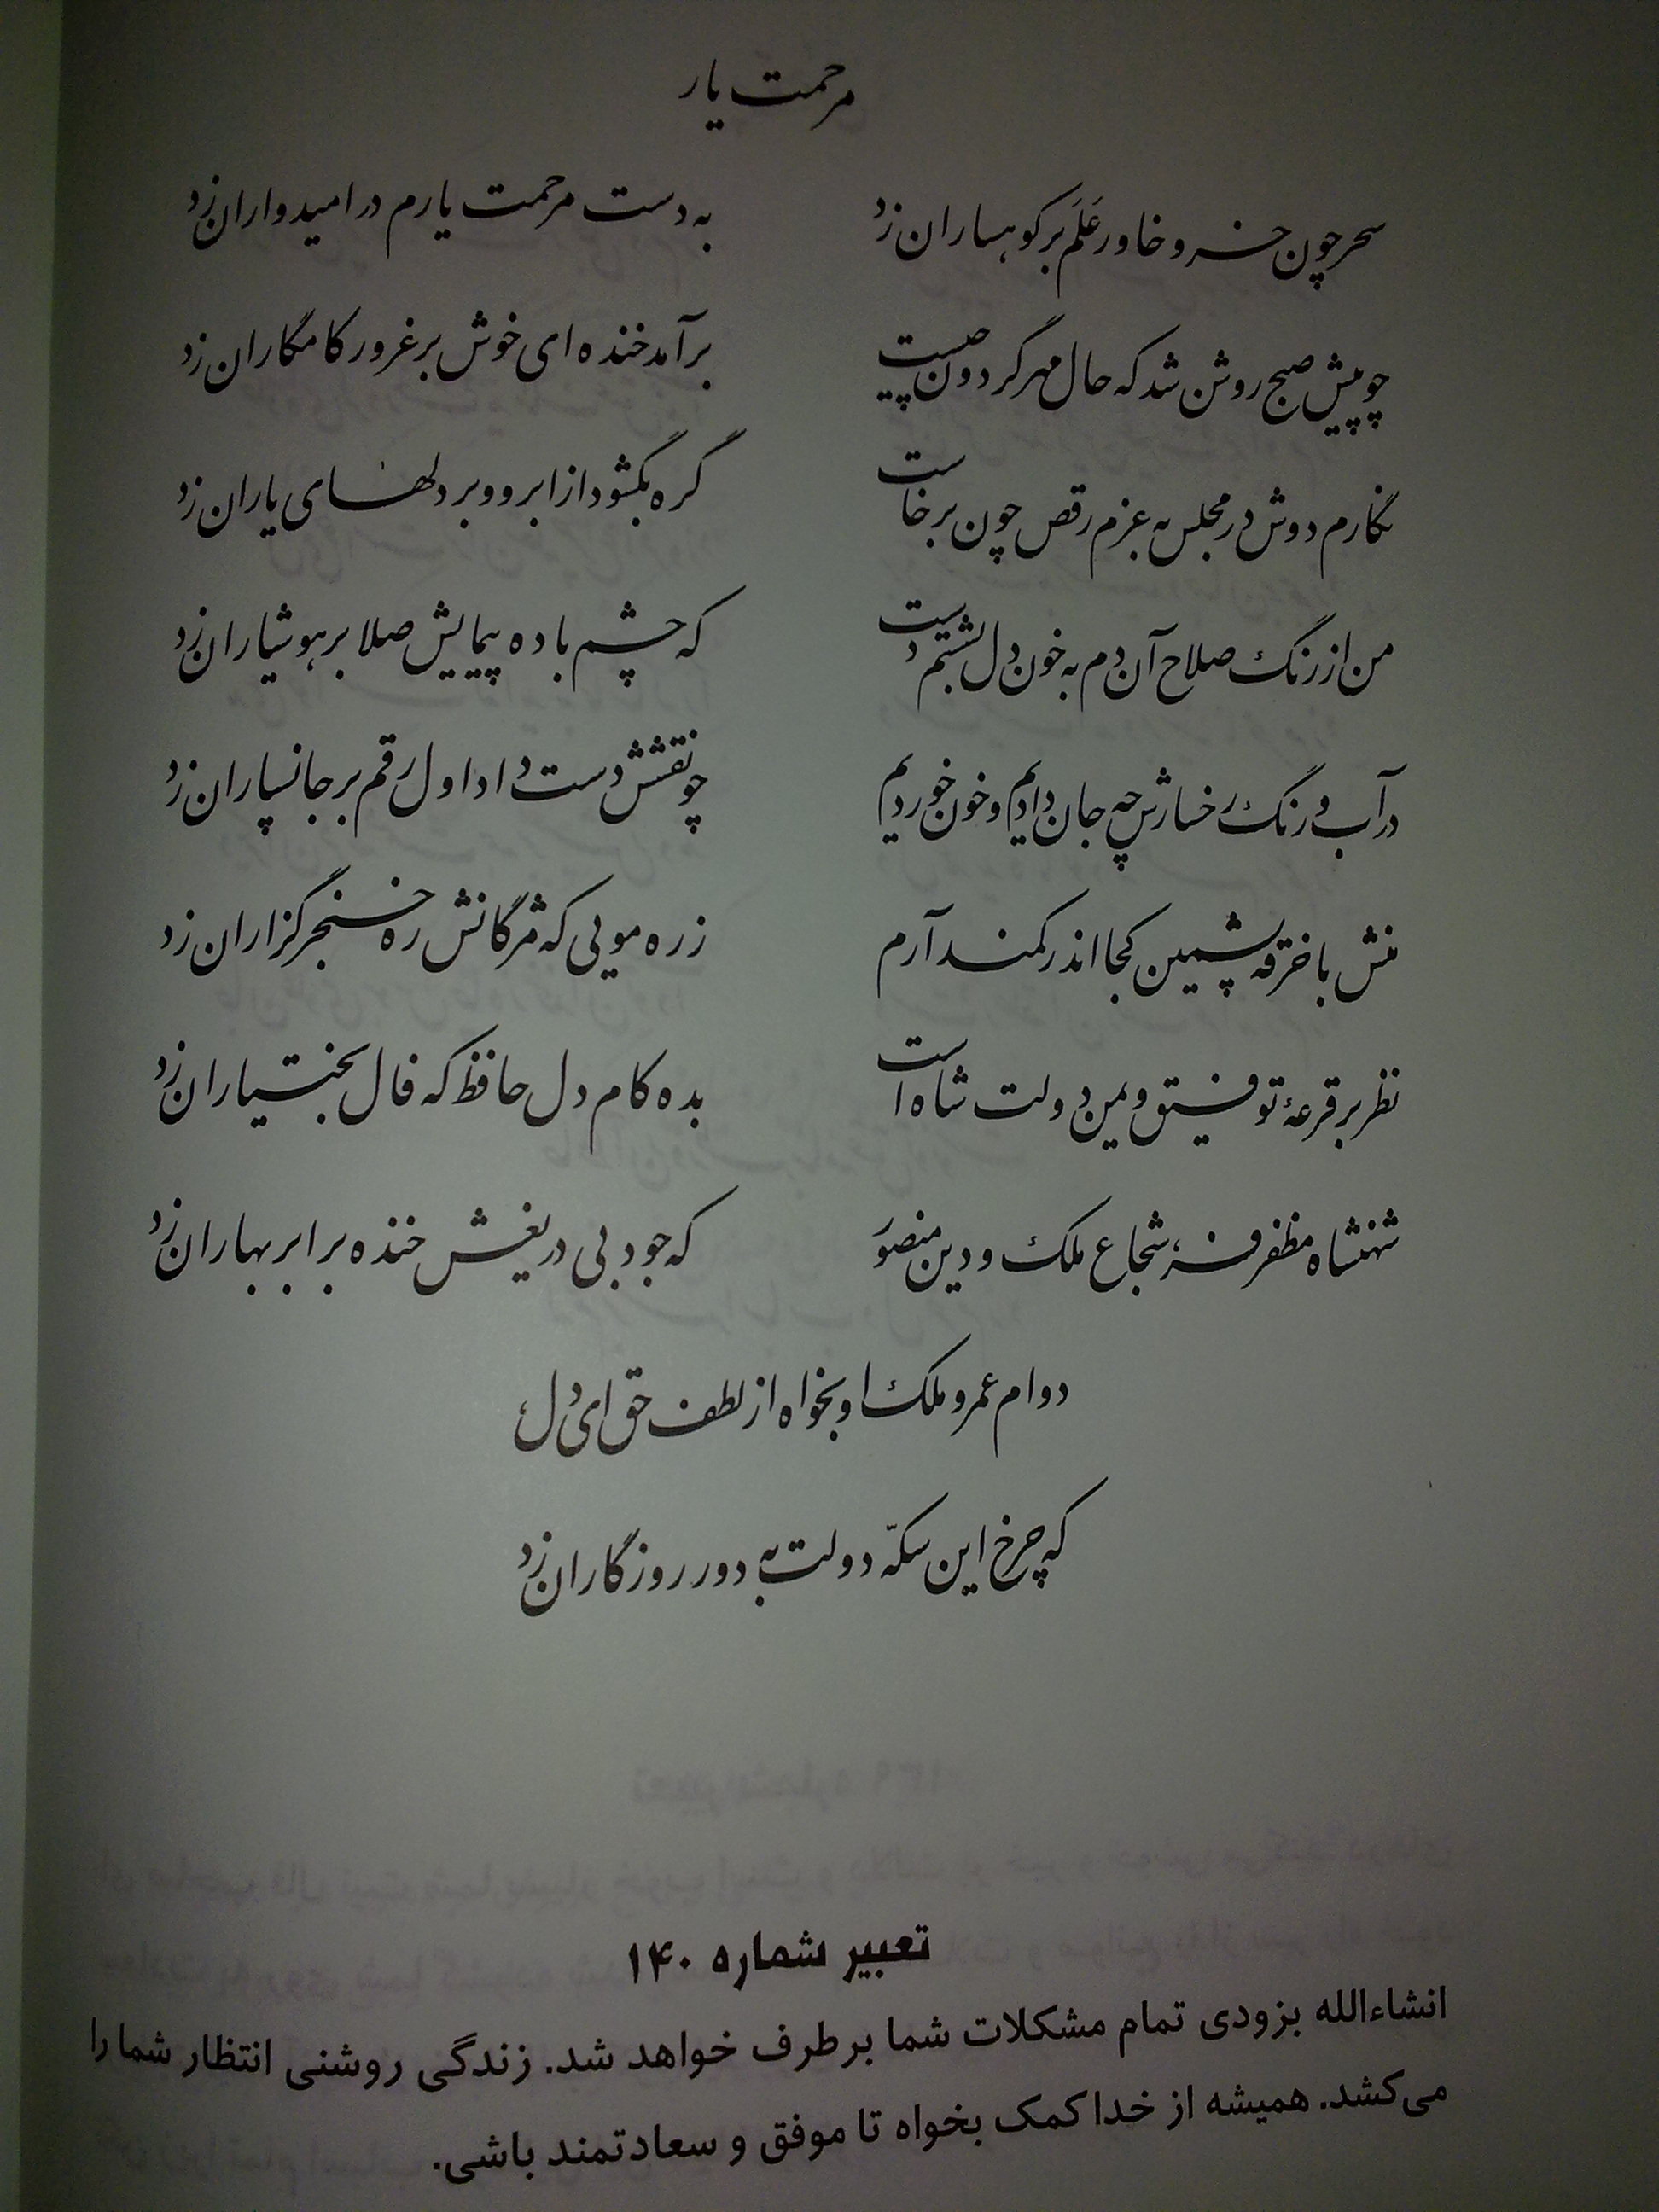 مرحمت یار
سحر چون خسرو خاور عَلَم بر کوهساران زد
به دست مرحمت یارم در امیدواران زد
چو پیش صبح روشن شد که حال مهر گردون چیست
برآمد خنده‌ای خوش بر غرور کامگاران زد
نگارم دوش در مجلس به عزم رقص چون برخاست
گره بگشود از ابرو و بر دلهای یاران زد
من از رنگ صلاح آن دم به خون دل بشستم دست
که چشم باده پیمایش صلا بر هوشیاران زد
در آب و رنگ رخسارش چه جان دادیم و خون خوردیم
چو نقشش دست داد اول رقم بر جانسپاران زد
منش با خرقه پشمین کجا اندر کمند آرم
زره مویی که مژگانش ره خنجرگزاران زد
نظر بر قرعهٔ توفیق و یمن دولت شاه است
بده کام دل حافظ که فال بختیاران زد
شهنشاه مظفر فر، شجاع ملک و دین منصور
که جود بی دریغش خنده بر ابر بهاران زد
دوام عمر و ملک او بخواه از لطف حق ای دل
که چرخ این سکّه دولت به دور روزگاران زد
تعبیر شماره ۱۴۰
انشاءالله بزودی تمام مشکلات شما برطرف خواهد شد. زندگی روشنی انتظار شما را
می‌کشد. همیشه از خدا کمک بخواه تا موفق و سعادتمند باشی.